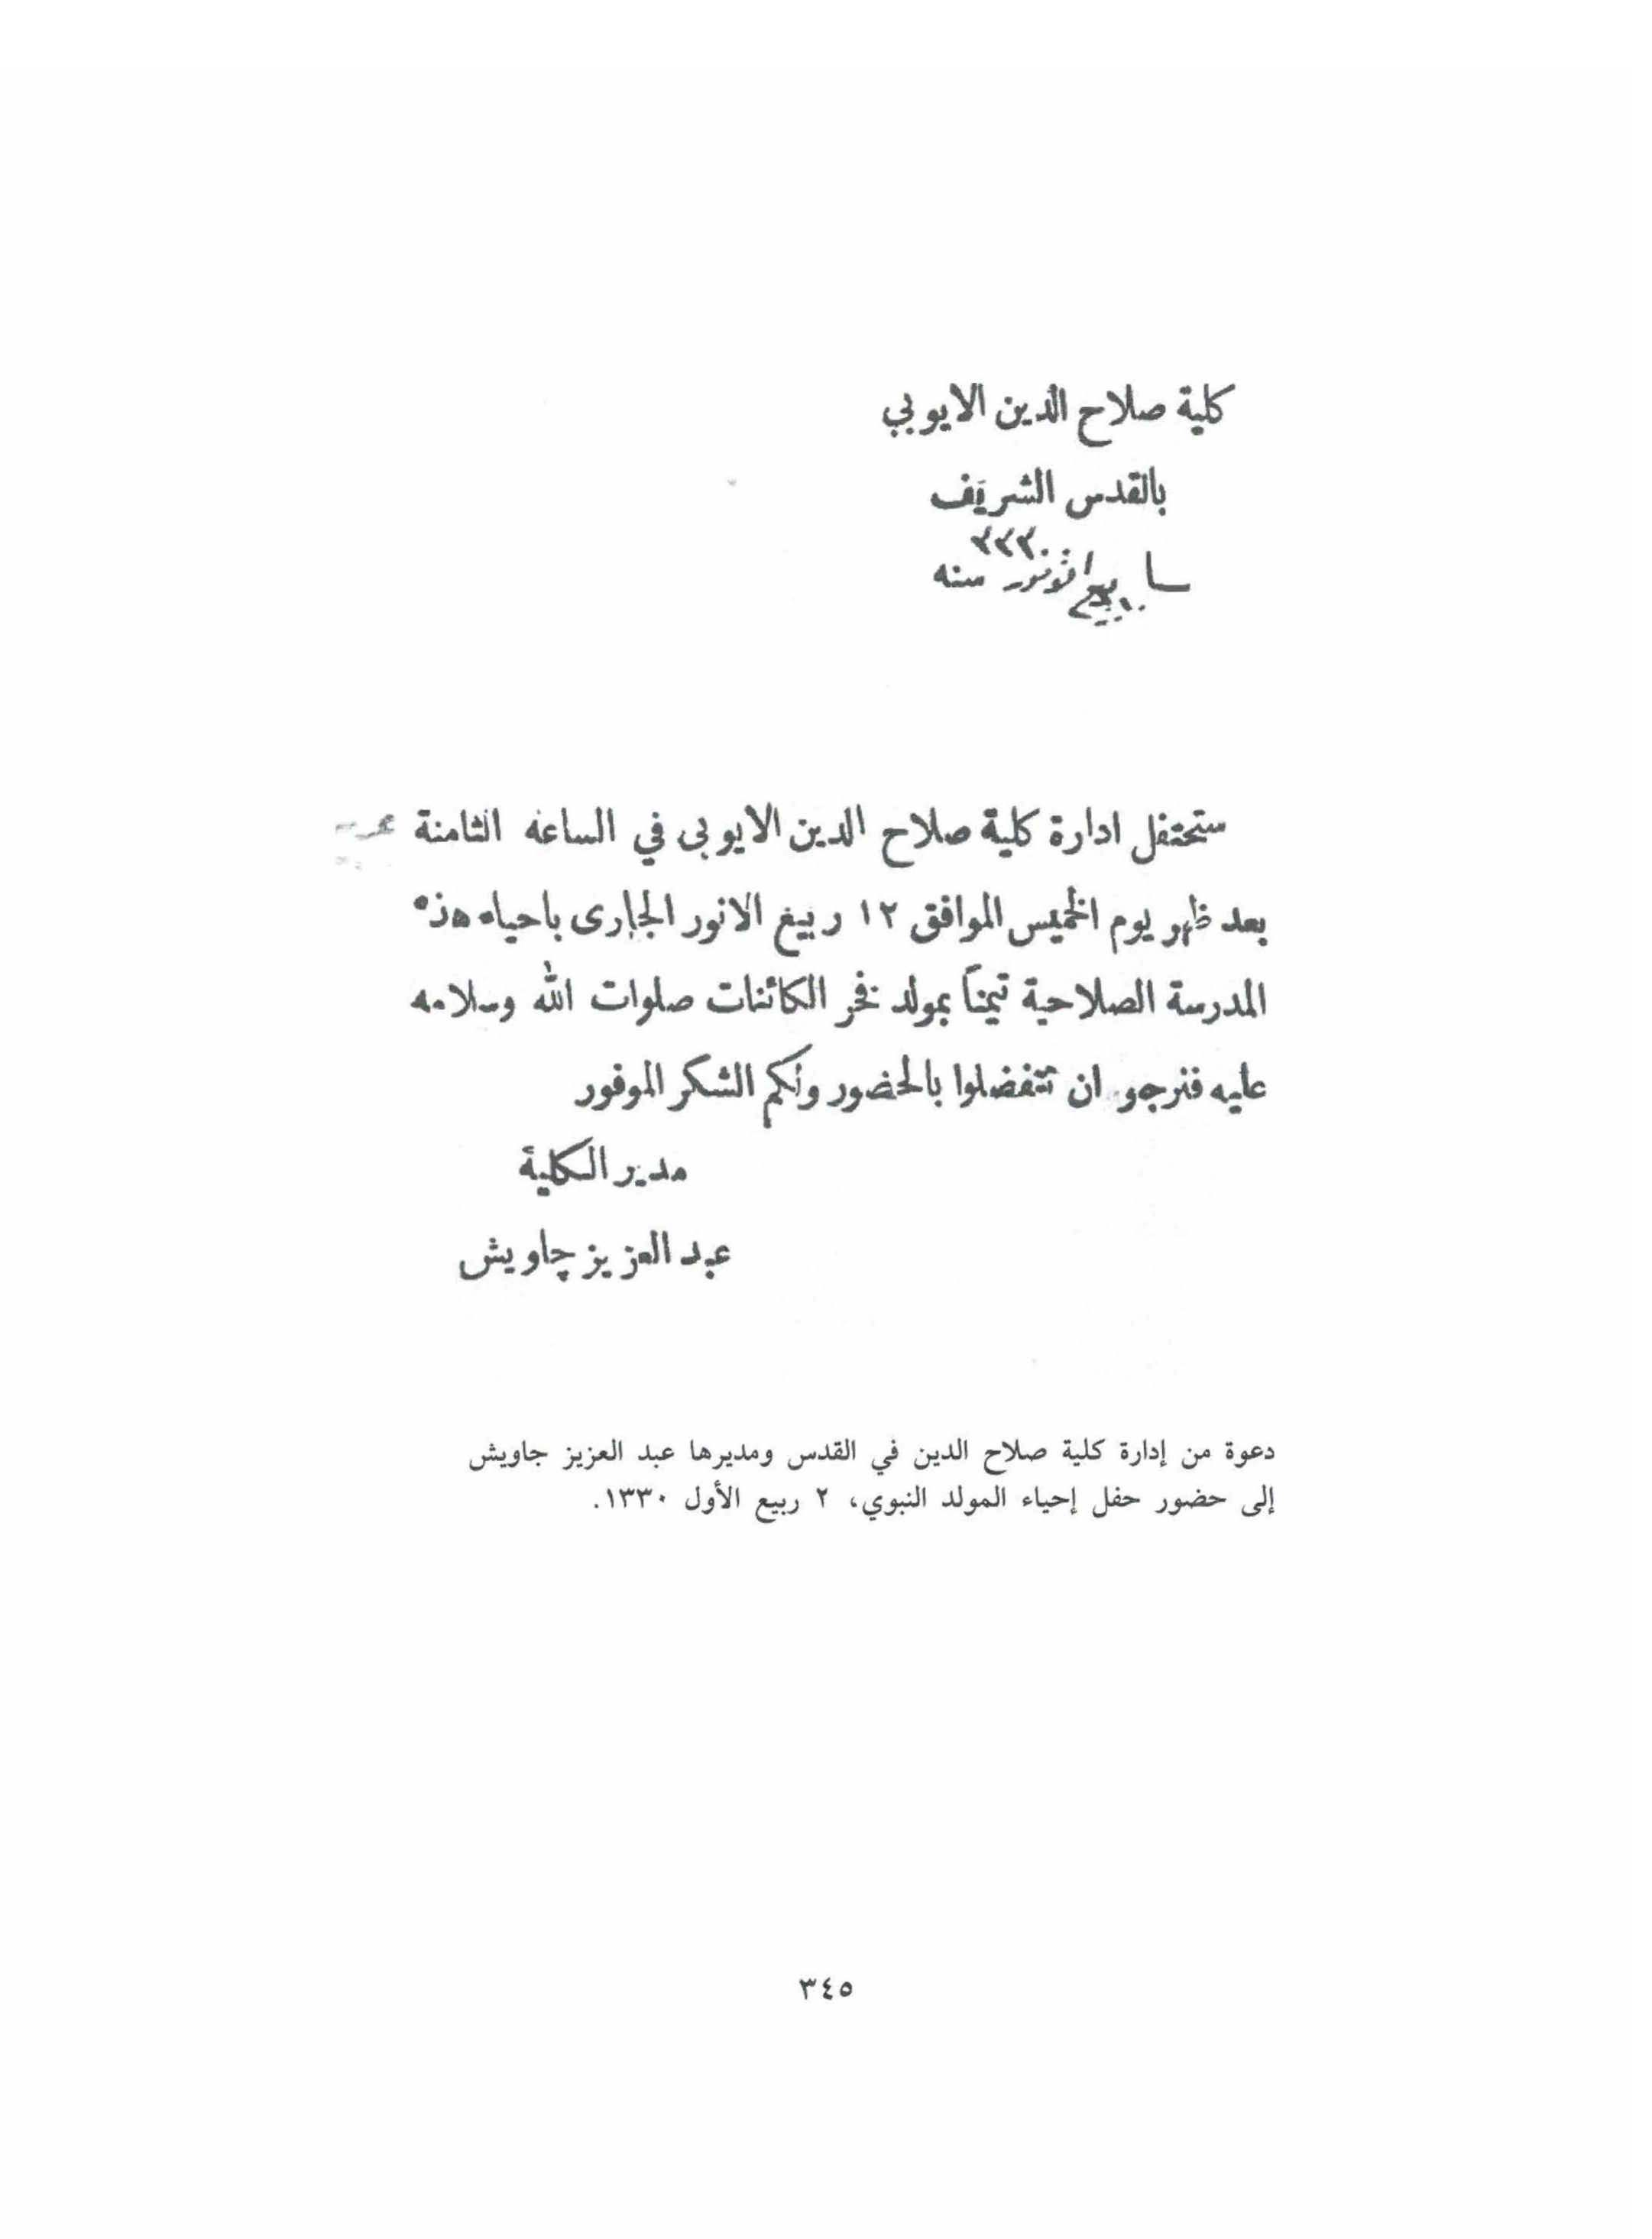 كلية صلاح الدين الايوبي
بالقدس الشريف
ربيع الانور سنه
ستحتفل ادارة كلية صلاح الدين الايوبى في الساعه الثامنة
بعد ظهر يوم الخميس الموافق ١٢ ربيغ الانور الجارى باحياء هذه
المدرسة الصلاحية تيمناً بمولد فخر الكائنات صلوات الله وسلامه
عليه فنرجو ان تتفضلوا بالحضور ولكم الشكر الموفور
مدير الكلية
عبد العزيز چاويش
دعوة من إدارة كلية صلاح الدين في القدس ومديرها عبد العزيز جاويش
إلى حضور حفل إحياء المولد النبوي، ٢ ربيع الأول ١٣٣٠.
٣٤٥